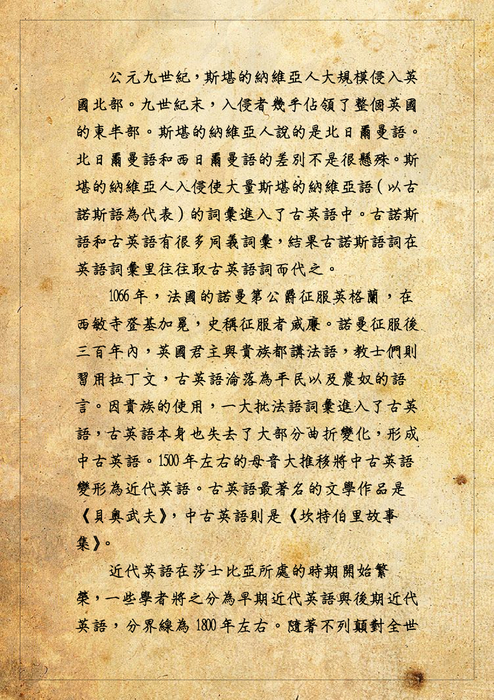 公元九世紀，斯堪的納維亞人大規模侵入英
國北部。九世紀末，入侵者幾乎佔領了整個英國
的東半部。斯堪的納維亞人說的是北日爾曼語。
北日爾曼語和西日爾曼語的差別不是很懸殊。斯
堪的納維亞人入侵使大量斯堪的納維亞語（以古
諾斯語為代表）的詞彙進入了古英語中。古諾斯
語和古英語有很多同義詞彙，結果古諾斯語詞在
英語詞彙里往往取古英語詞而代之。
1066 年，法國的諾曼第公爵征服英格蘭，在
西敏寺登基加冕，史稱征服者威廉。諾曼征服後
三百年內，英國君主與貴族都講法語，教士們則
習用拉丁文，古英語淪落為平民以及農奴的語
言。因貴族的使用，一大批法語詞彙進入了古英
語，古英語本身也失去了大部分曲折變化，形成
中古英語。1500 年左右的母音大推移將中古英語
變形為近代英語。古英語最著名的文學作品是
《貝奧武夫》，中古英語則是《坎特伯里故事
集》。
近代英語在莎士比亞所處的時期開始繁
榮，一些學者將之分為早期近代英語與後期近代
英語，分界線為 1800 年左右。隨著不列顛對全世